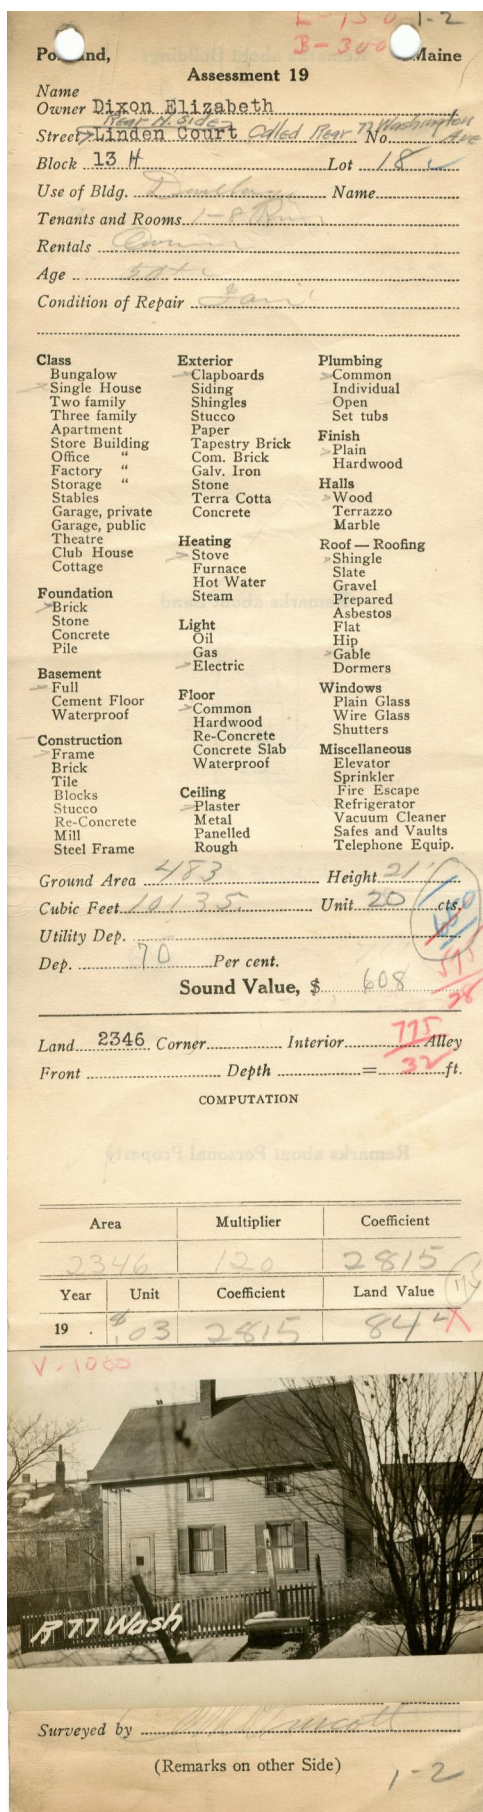 L-150 1-2
B-300
Portland, Maine
Assessment 19
Name
Owner Dixon Elizabeth
Rear N. Side
Street Linden Court Called Rear 77 Washington Ave No.
Block 13 H Lot 18 ✓
Use of Bldg. Dwelling Name
Tenants and Rooms 1-8 Rms
Rentals Owner
Age 50+
Condition of Repair Fair
Class
Bungalow
> Single House
Two family
Three family
Apartment
Store Building
Office "
Factory "
Storage "
Stables
Garage, private
Garage, public
Theatre
Club House
Cottage
Foundation
> Brick
Stone
Concrete
Pile
Basement
> Full
Cement Floor
Waterproof
Construction
> Frame
Brick
Tile
Blocks
Stucco
Re-Concrete
Mill
Steel Frame
Exterior
> Clapboards
Siding
Shingles
Stucco
Paper
Tapestry Brick
Com. Brick
Galv. Iron
Stone
Terra Cotta
Concrete
Heating
> Stove
Furnace
Hot Water
Steam
Light
Oil
Gas
> Electric
Floor
> Common
Hardwood
Re-Concrete
Concrete Slab
Waterproof
Ceiling
> Plaster
Metal
Panelled
Rough
Plumbing
> Common
Individual
Open
Set tubs
Finish
> Plain
Hardwood
Halls
> Wood
Terrazzo
Marble
Roof — Roofing
> Shingle
Slate
Gravel
Prepared
Asbestos
Flat
Hip
> Gable
Dormers
Windows
Plain Glass
Wire Glass
Shutters
Miscellaneous
Elevator
Sprinkler
Fire Escape
Refrigerator
Vacuum Cleaner
Safes and Vaults
Telephone Equip.
Ground Area 483 Height 21'
Cubic Feet 10135 Unit 20 cts.
Utility Dep.
Dep. 70 Per cent.
Sound Value, $ 608
Land 2346 Corner Interior 775 Alley
Front Depth = 32 ft.
COMPUTATION
Area Multiplier Coefficient
2346 120 2815
Year Unit Coefficient Land Value
19 . $.03 2815 84
V-1000
R 77 Wash
Surveyed by
(Remarks on other Side)
1-2